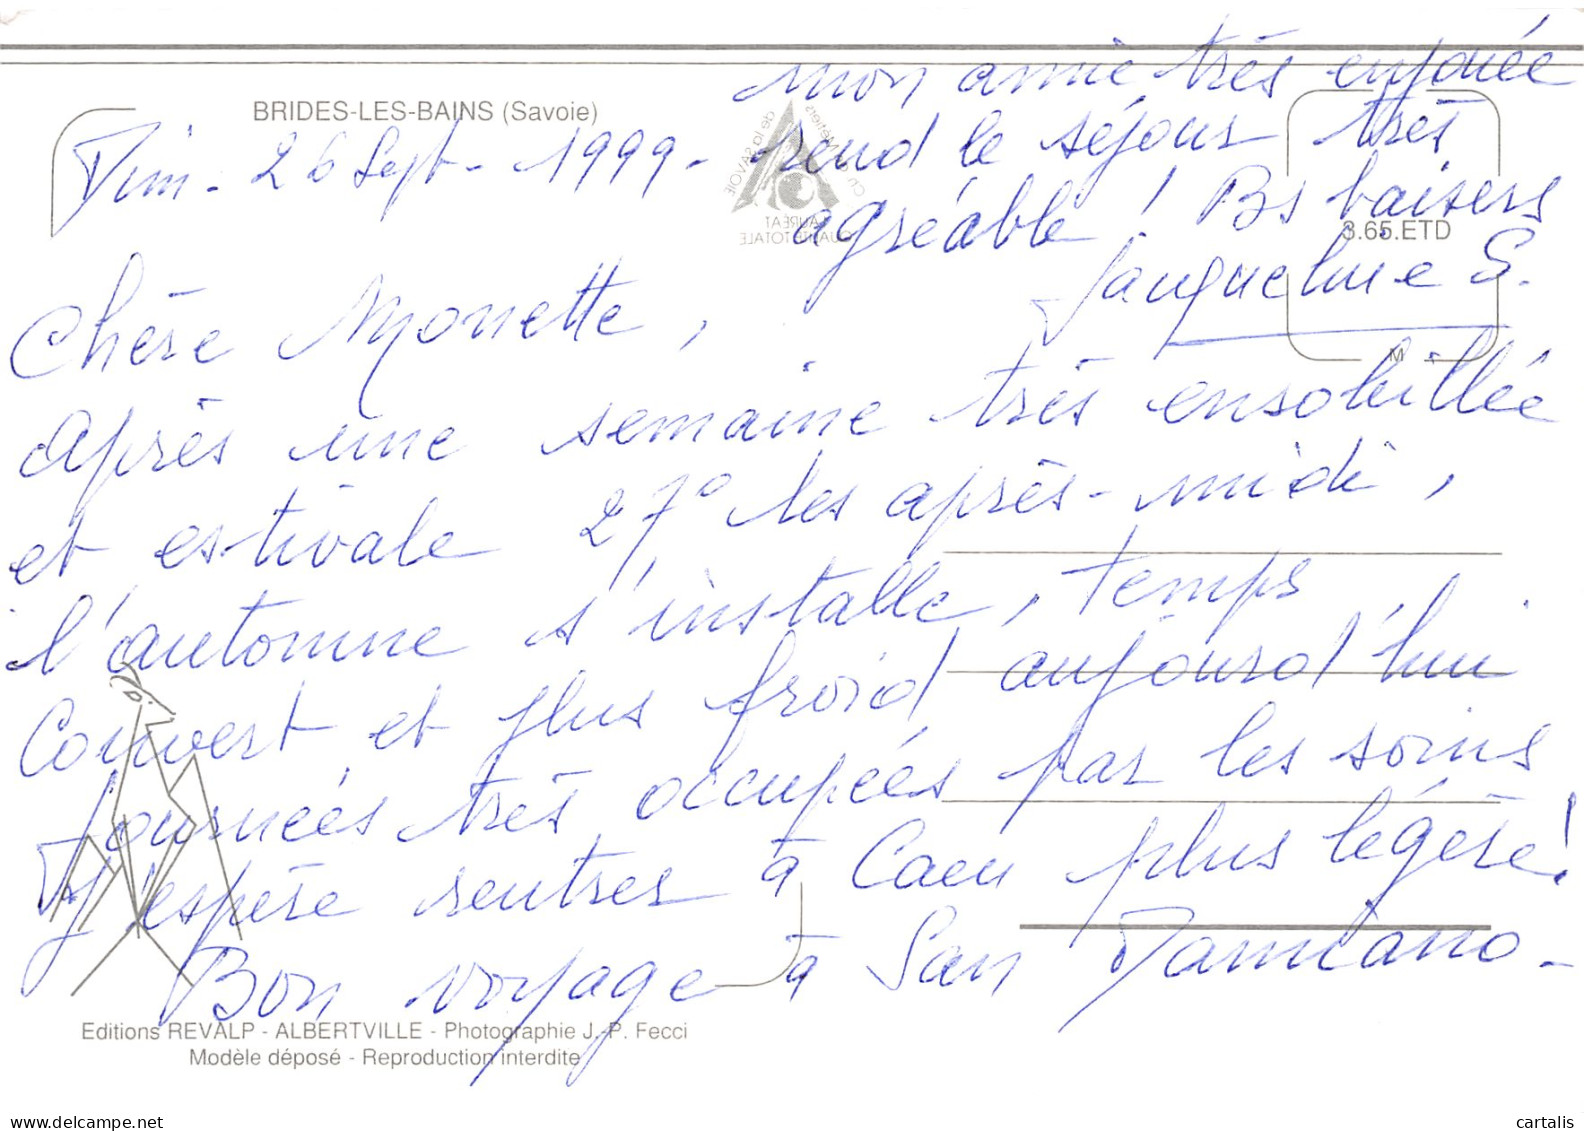 BRIDES-LES-BAINS (Savoie)
Dim. 26 Sept. 1999 -
Chère Monette,
Après une semaine très ensoleillée
et estivale 27° les après-midi,
l'automne s'installe, temps
couvert et plus froid aujourd'hui.
Journées très occupées par les soins
J'espère rentrer à Caen plus légère!
Bon voyage à San Damiano -
mon amie très enjouée
rend le séjour très
agréable! Bs baisers
Jacqueline S.
LAURÉAT
QUALITÉ TOTALE
de la SAVOIE
3.65.ETD
M
Editions REVALP - ALBERTVILLE - Photographie J.-P. Fecci
Modèle déposé - Reproduction interdite
delcampe.net
cartalis